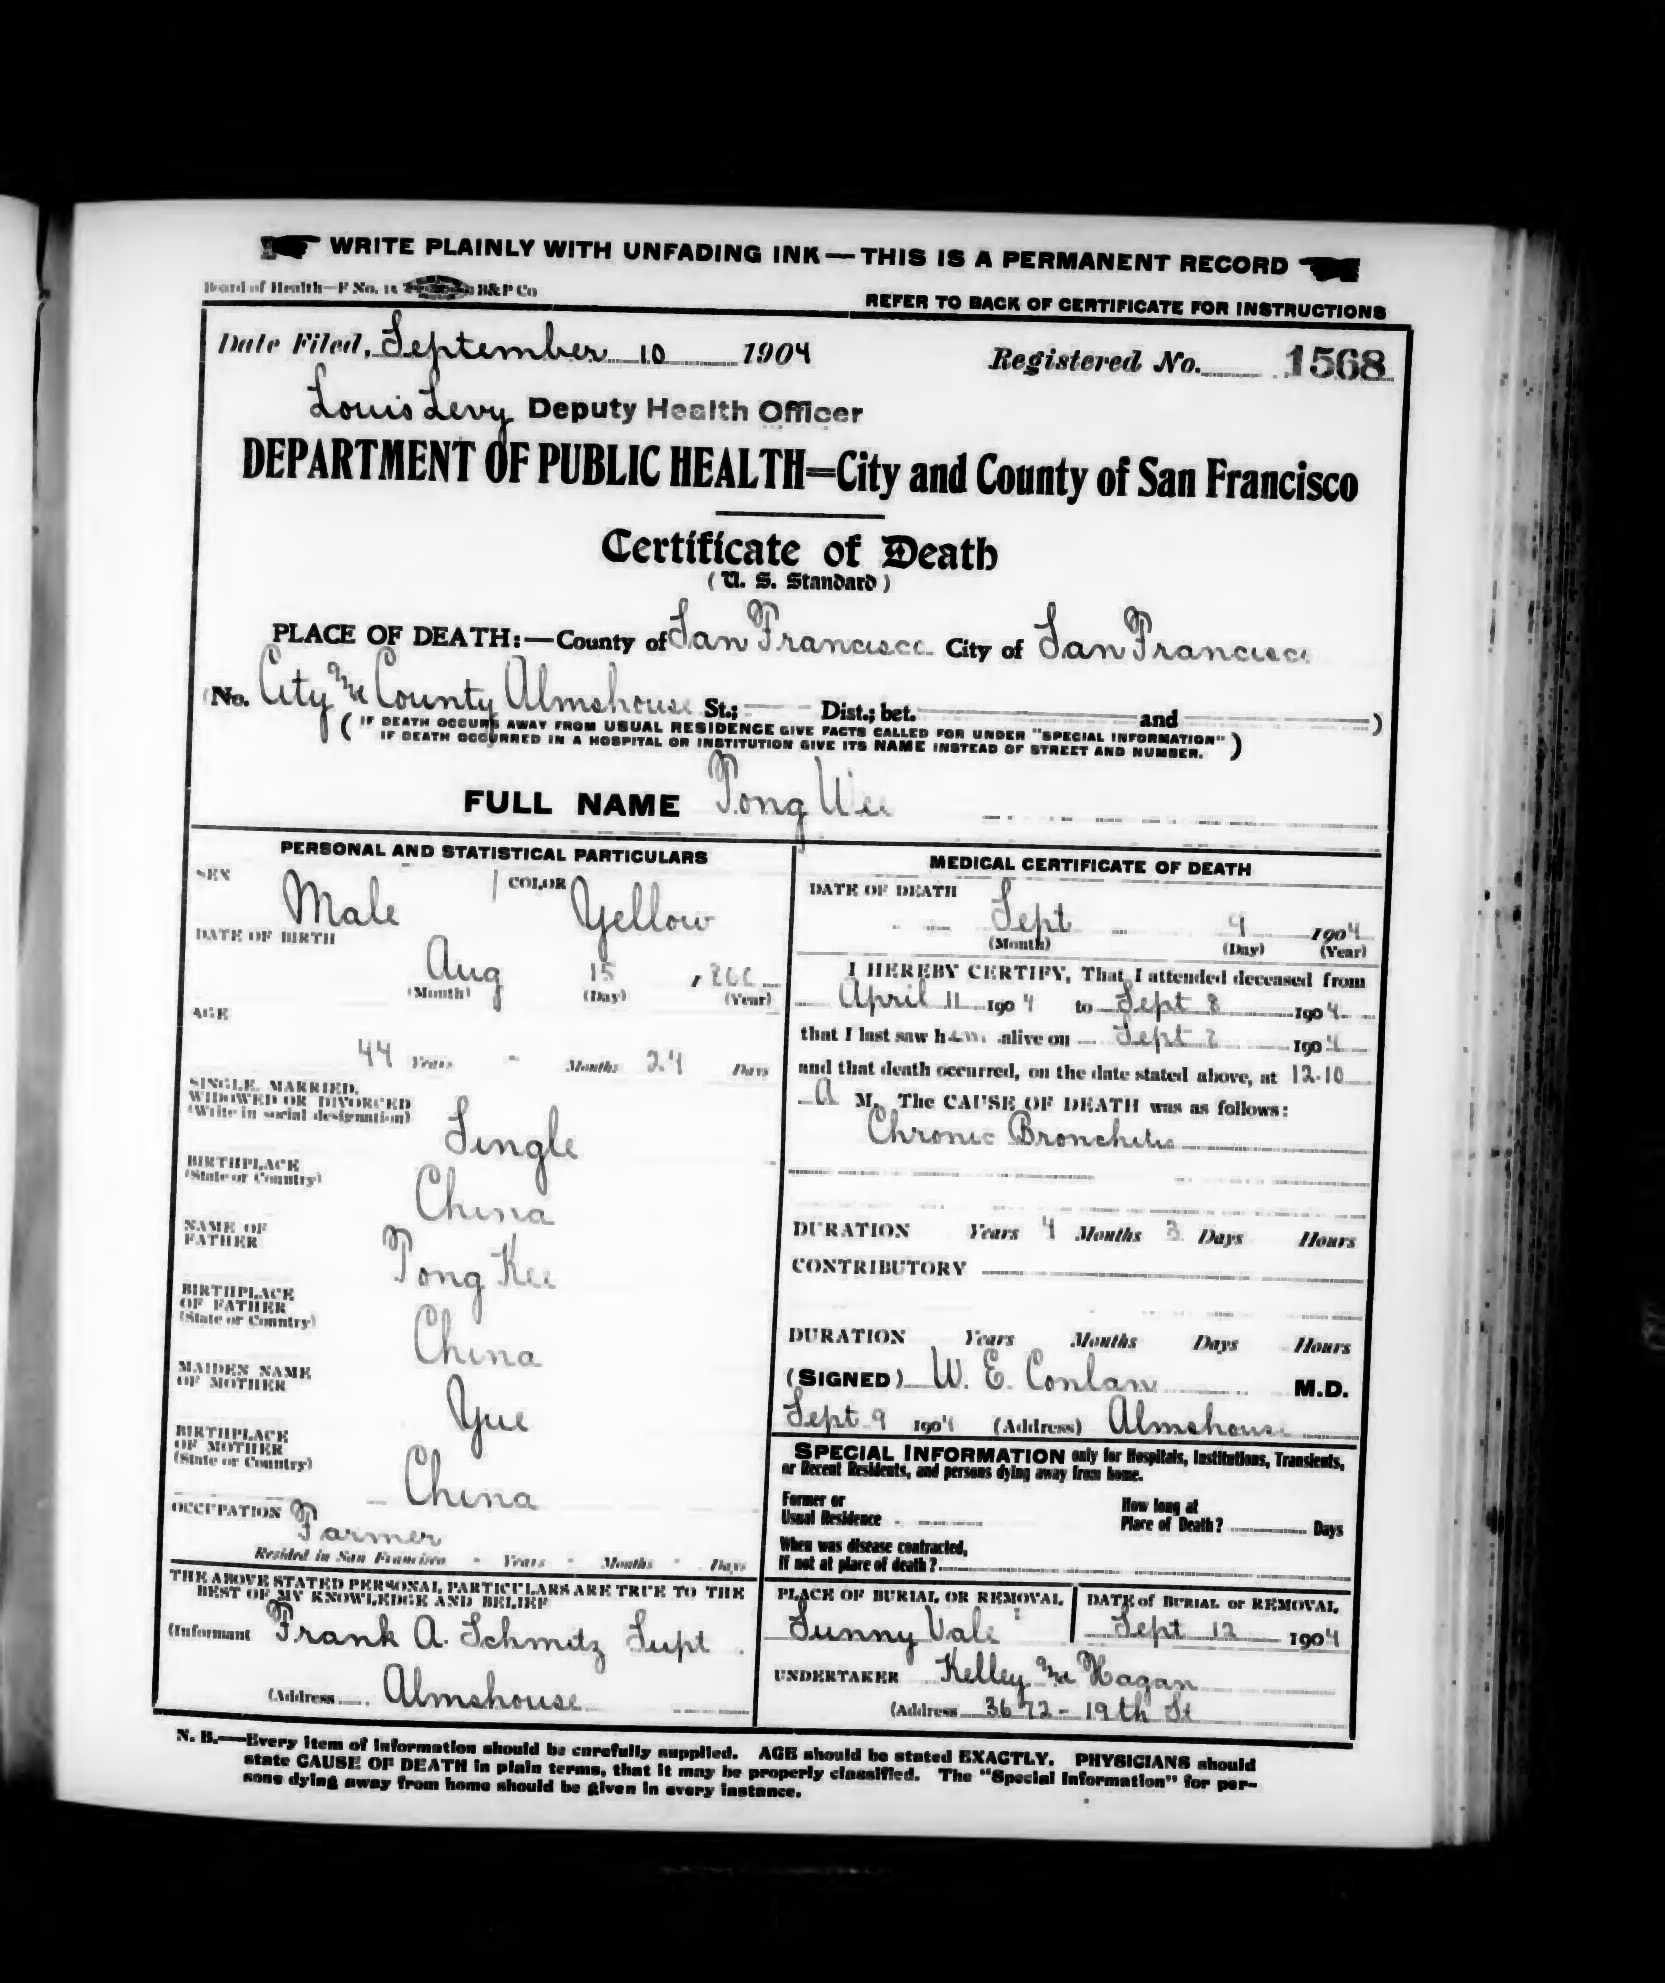 WRITE PLAINLY WITH UNFADING INK — THIS IS A PERMANENT RECORD
Board of Health—F No. 15 B&P Co
REFER TO BACK OF CERTIFICATE FOR INSTRUCTIONS
Date Filed, September 10 1904 Registered No. 1568
Louis Levy Deputy Health Officer
DEPARTMENT OF PUBLIC HEALTH=City and County of San Francisco
Certificate of Death
(U. S. Standard)
PLACE OF DEATH:—County of San Francisco City of San Francisco
(No. City and County Almshouse St.; Dist.; bet. and )
( IF DEATH OCCURS AWAY FROM USUAL RESIDENCE GIVE FACTS CALLED FOR UNDER "SPECIAL INFORMATION"
IF DEATH OCCURRED IN A HOSPITAL OR INSTITUTION GIVE ITS NAME INSTEAD OF STREET AND NUMBER. )
FULL NAME Tong Wee
PERSONAL AND STATISTICAL PARTICULARS
SEX Male COLOR Yellow
DATE OF BIRTH
Aug 15
(Month) (Day) (Year)
AGE
44 Years - Months 24 Days
SINGLE, MARRIED,
WIDOWED OR DIVORCED
(Write in social designation) Single
BIRTHPLACE
(State or Country) China
NAME OF
FATHER Tong Kee
BIRTHPLACE
OF FATHER
(State or Country) China
MAIDEN NAME
OF MOTHER Yue
BIRTHPLACE
OF MOTHER
(State or Country) China
OCCUPATION Farmer
Resided in San Francisco - Years - Months - Days
THE ABOVE STATED PERSONAL PARTICULARS ARE TRUE TO THE
BEST OF MY KNOWLEDGE AND BELIEF
(Informant Frank A. Schmitz Supt
(Address Almshouse
MEDICAL CERTIFICATE OF DEATH
DATE OF DEATH
Sept 9 1904
(Month) (Day) (Year)
I HEREBY CERTIFY, That I attended deceased from
April 11 1904 to Sept 8 1904
that I last saw him alive on Sept 1904
and that death occurred, on the date stated above, at 12-10
A M. The CAUSE OF DEATH was as follows:
Chronic Bronchitis
DURATION Years 4 Months 3 Days Hours
CONTRIBUTORY
DURATION Years Months Days Hours
(SIGNED) W. E. Conlan M.D.
Sept 9 1904 (Address) Almshouse
SPECIAL INFORMATION only for Hospitals, Institutions, Transients,
or Recent Residents, and persons dying away from home.
Former or
Usual Residence
How long at
Place of Death? Days
When was disease contracted,
If not at place of death?
PLACE OF BURIAL OR REMOVAL
Sunny Vale
DATE of BURIAL or REMOVAL
Sept 12 1904
UNDERTAKER Kelley and Hagan
(Address 3672 - 19th St
N. B.—Every item of information should be carefully supplied. AGE should be stated EXACTLY. PHYSICIANS should
state CAUSE OF DEATH in plain terms, that it may be properly classified. The "Special Information" for per-
sons dying away from home should be given in every instance.